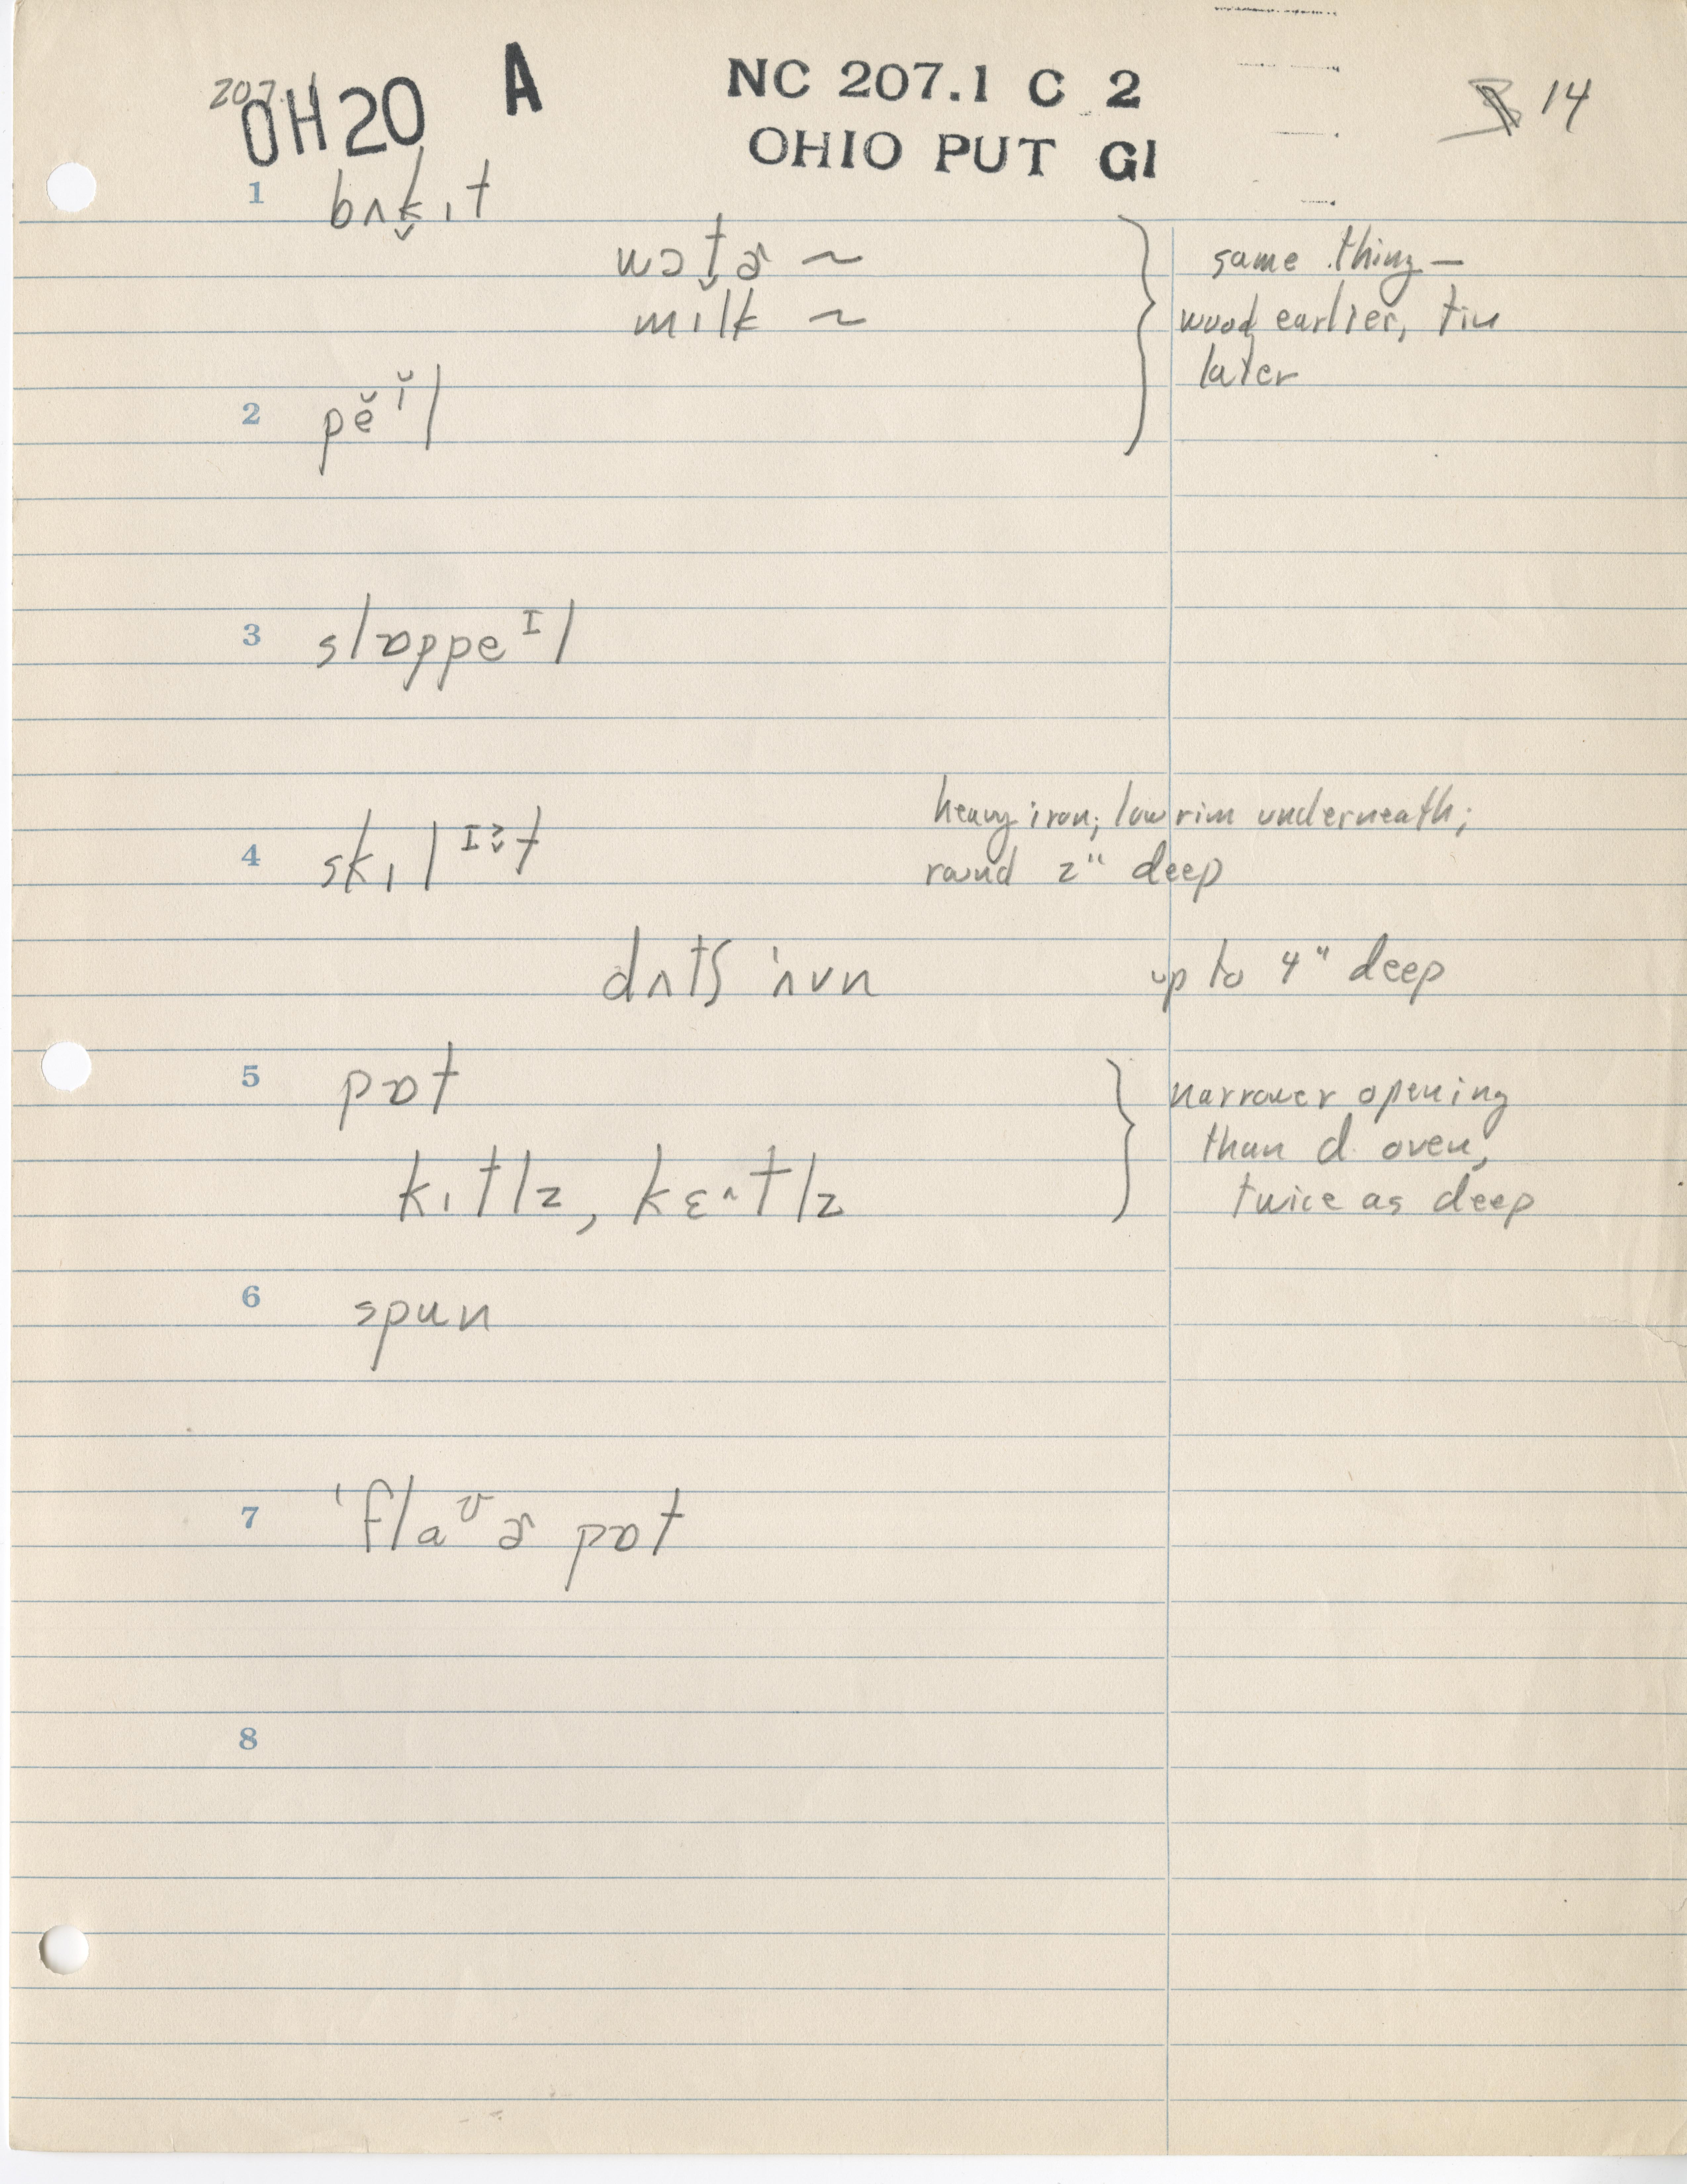 207.1
OH20 A NC 207.1 C 2 14
OHIO PUT G1
1 bʌk̬ɪt
wɔt̬ɚ ~ same thing—
mɪlk ~ wood earlier, tin
later
2 pĕɪ̆l
3 slɒppeᴵl
4 skɪlᴵt heavy iron; low rim underneath;
round 2" deep
dʌtʃ 'ʌvn up to 4" deep
5 pɒt narrower opening
than d. oven,
kɪtlz, kɛ^tlz twice as deep
6 spun
7 'flaᶷɚ pɒt
8